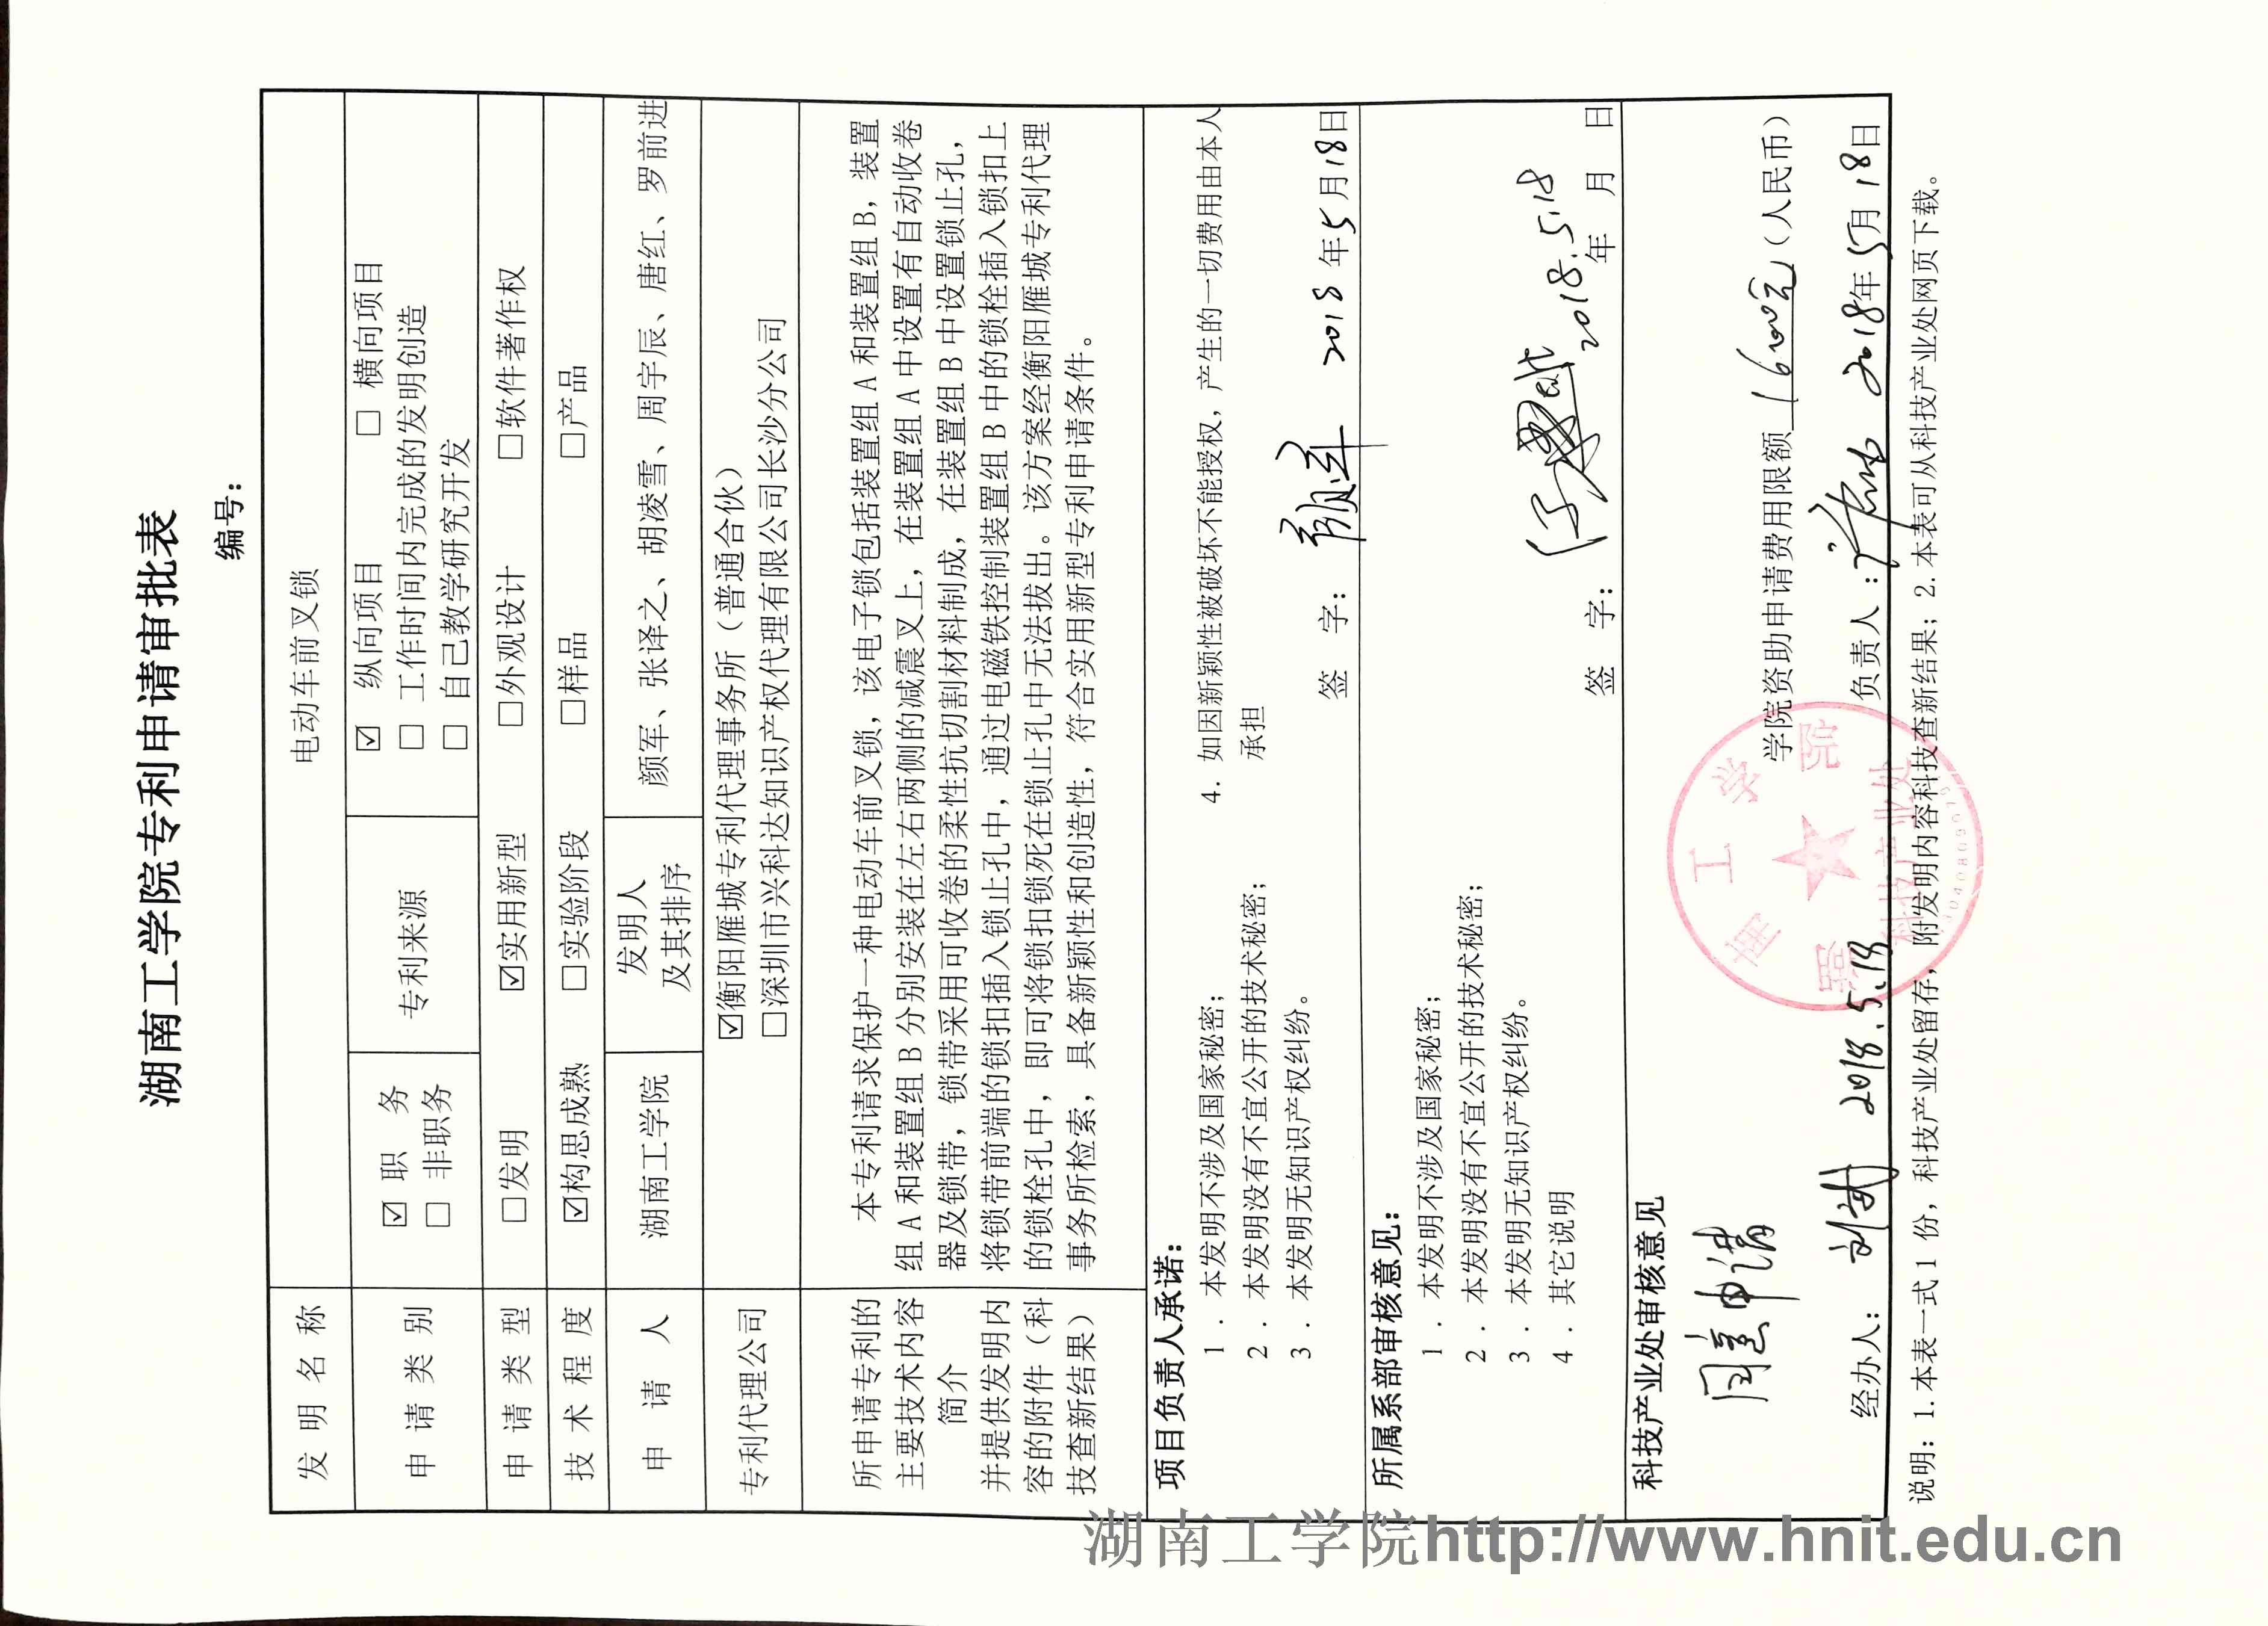 湖南工学院专利申请审批表
编号：
发 明 名 称 电动车前叉锁
申 请 类 别 ☑ 职 务 专利来源 ☑ 纵向项目 □ 横向项目
□ 非职务 □ 工作时间内完成的发明创造
□ 自己教学研究开发
申 请 类 型 □发明 ☑实用新型 □外观设计 □软件著作权
技 术 程 度 ☑构思成熟 □实验阶段 □样品 □产品
申 请 人 湖南工学院 发明人
及其排序 颜军、张译之、胡凌雪、周宇辰、唐红、罗前进
专利代理公司 ☑衡阳雁城专利代理事务所（普通合伙）
□深圳市兴科达知识产权代理有限公司长沙分公司
所申请专利的
主要技术内容
简介
并提供发明内
容的附件（科
技查新结果）
本专利请求保护一种电动车前叉锁，该电子锁包括装置组 A 和装置组 B，装置
组 A 和装置组 B 分别安装在左右两侧的减震叉上，在装置组 A 中设置有自动收卷
器及锁带，锁带采用可收卷的柔性抗切割材料制成，在装置组 B 中设置锁止孔，
将锁带前端的锁扣插入锁止孔中，通过电磁铁控制装置组 B 中的锁栓插入锁扣上
的锁栓孔中，即可将锁扣锁死在锁止孔中无法拔出。该方案经衡阳雁城专利代理
事务所检索，具备新颖性和创造性，符合实用新型专利申请条件。
项目负责人承诺：
1． 本发明不涉及国家秘密； 4．如因新颖性被破坏不能授权，产生的一切费用由本人
2． 本发明没有不宜公开的技术秘密； 承担
3． 本发明无知识产权纠纷。
签 字： 2018 年 5 月 18 日
所属系部审核意见：
1． 本发明不涉及国家秘密；
2． 本发明没有不宜公开的技术秘密；
3． 本发明无知识产权纠纷。
4． 其它说明
2018.5.18
签 字： 年 月 日
科技产业处审核意见
同意申请
学院资助申请费用限额 1600元（人民币）
经办人： 2018.5.18 负责人： 2018年 5月 18日
湖南工学院
科技产业处
说明：1.本表一式 1 份，科技产业处留存，附发明内容科技查新结果；2.本表可从科技产业处网页下载。
湖南工学院http://www.hnit.edu.cn